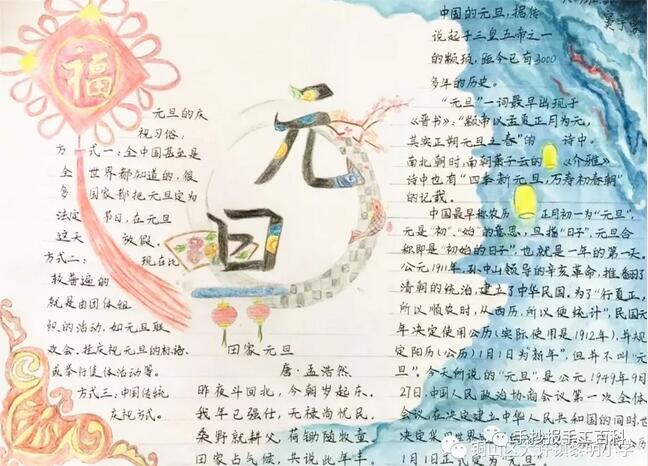 福
元旦
元旦的庆
祝习俗:
方式一:全中国甚至是
全世界都知道的,很
多国家都把元旦定为
法定节日,在元旦
这天放假;
方式二: 现在比
较普遍的
就是由团体组
织的活动,如元旦联
欢会、挂庆祝元旦的标语、
或举行集体活动等。
方式三:中国传统
庆祝方式。
田家元旦
唐·孟浩然
昨夜斗回北,今朝岁起东。
我年已强仕,无禄尚忧民。
桑野就耕父,荷锄随牧童。
田家占气候,共说此年丰。
中国的元旦,据传
说起于三皇五帝之一
的颛顼,距今已有3000
多年的历史。
“元旦”一词最早出现于
《晋书》:“颛帝以孟夏正月为元,
其实正朔元旦之春”的诗中。
南北朝时,南朝萧子云的《介雅》
诗中也有“四季新元旦,万寿初春朝”
的记载。
中国最早称农历正月初一为“元旦”,
元是“初”、“始”的意思,旦指“日子”,元旦合
称即是“初始的日子”,也就是一年的第一天。
公元1911年,孙中山领导的辛亥革命,推翻了
清朝的统治,建立了中华民国。为了“行夏正,
所以顺农时,从西历,所以便统计”,民国元
年决定使用公历(实际使用是1912年),并规
定阳历(公历)1月1日为“新年”,但并不叫“元
旦”。今天所说的“元旦”,是公元1949年9月
27日,中国人民政治协商会议第一次全体
会议,在决定建立中华人民共和国的同时,也
决定采用世界
1月1日正式定为“元旦”。
手抄报手工百科
铜山区大许镇黎明小学